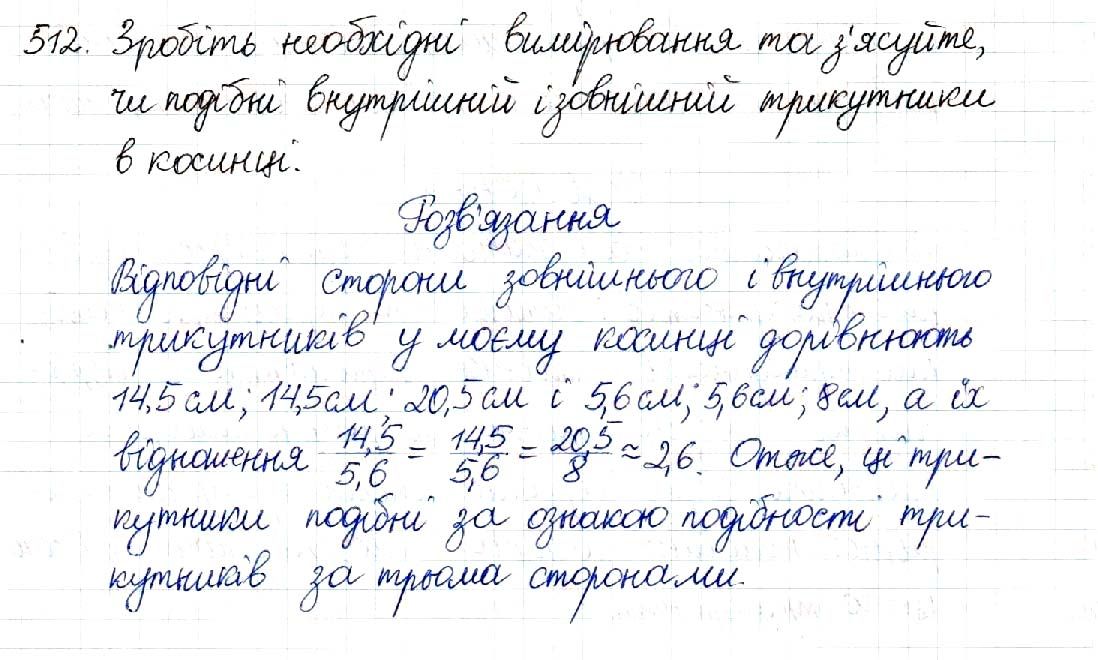 512. Зробіть необхідні вимірювання та з'ясуйте,
чи подібні внутрішній і зовнішній трикутники
в косинці.
Розв'язання
Відповідні сторони зовнішнього і внутрішнього
трикутників у моєму косинці дорівнюють
14,5 см; 14,5 см; 20,5 см і 5,6 см; 5,6 см; 8 см, а їх
відношення 14,5/5,6 = 14,5/5,6 = 20,5/8 ≈ 2,6. Отже, ці три-
кутники подібні за ознакою подібності три-
кутників за трьома сторонами.